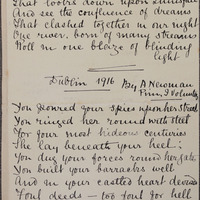 That looks down upon
And see the confluence of dreams
That clashed together in our night
One river, born of many streams
Roll in one blaze of blinding
light
Dublin 1916
By A Newman
You poured your spies upon her street
You ringed her round with steel
For four most hideous centuries
She lay beneath your heel;
You dug your forces round her gate
You built your barracks well
And in your castle's heart devised
Foul deeds — too foul for hell